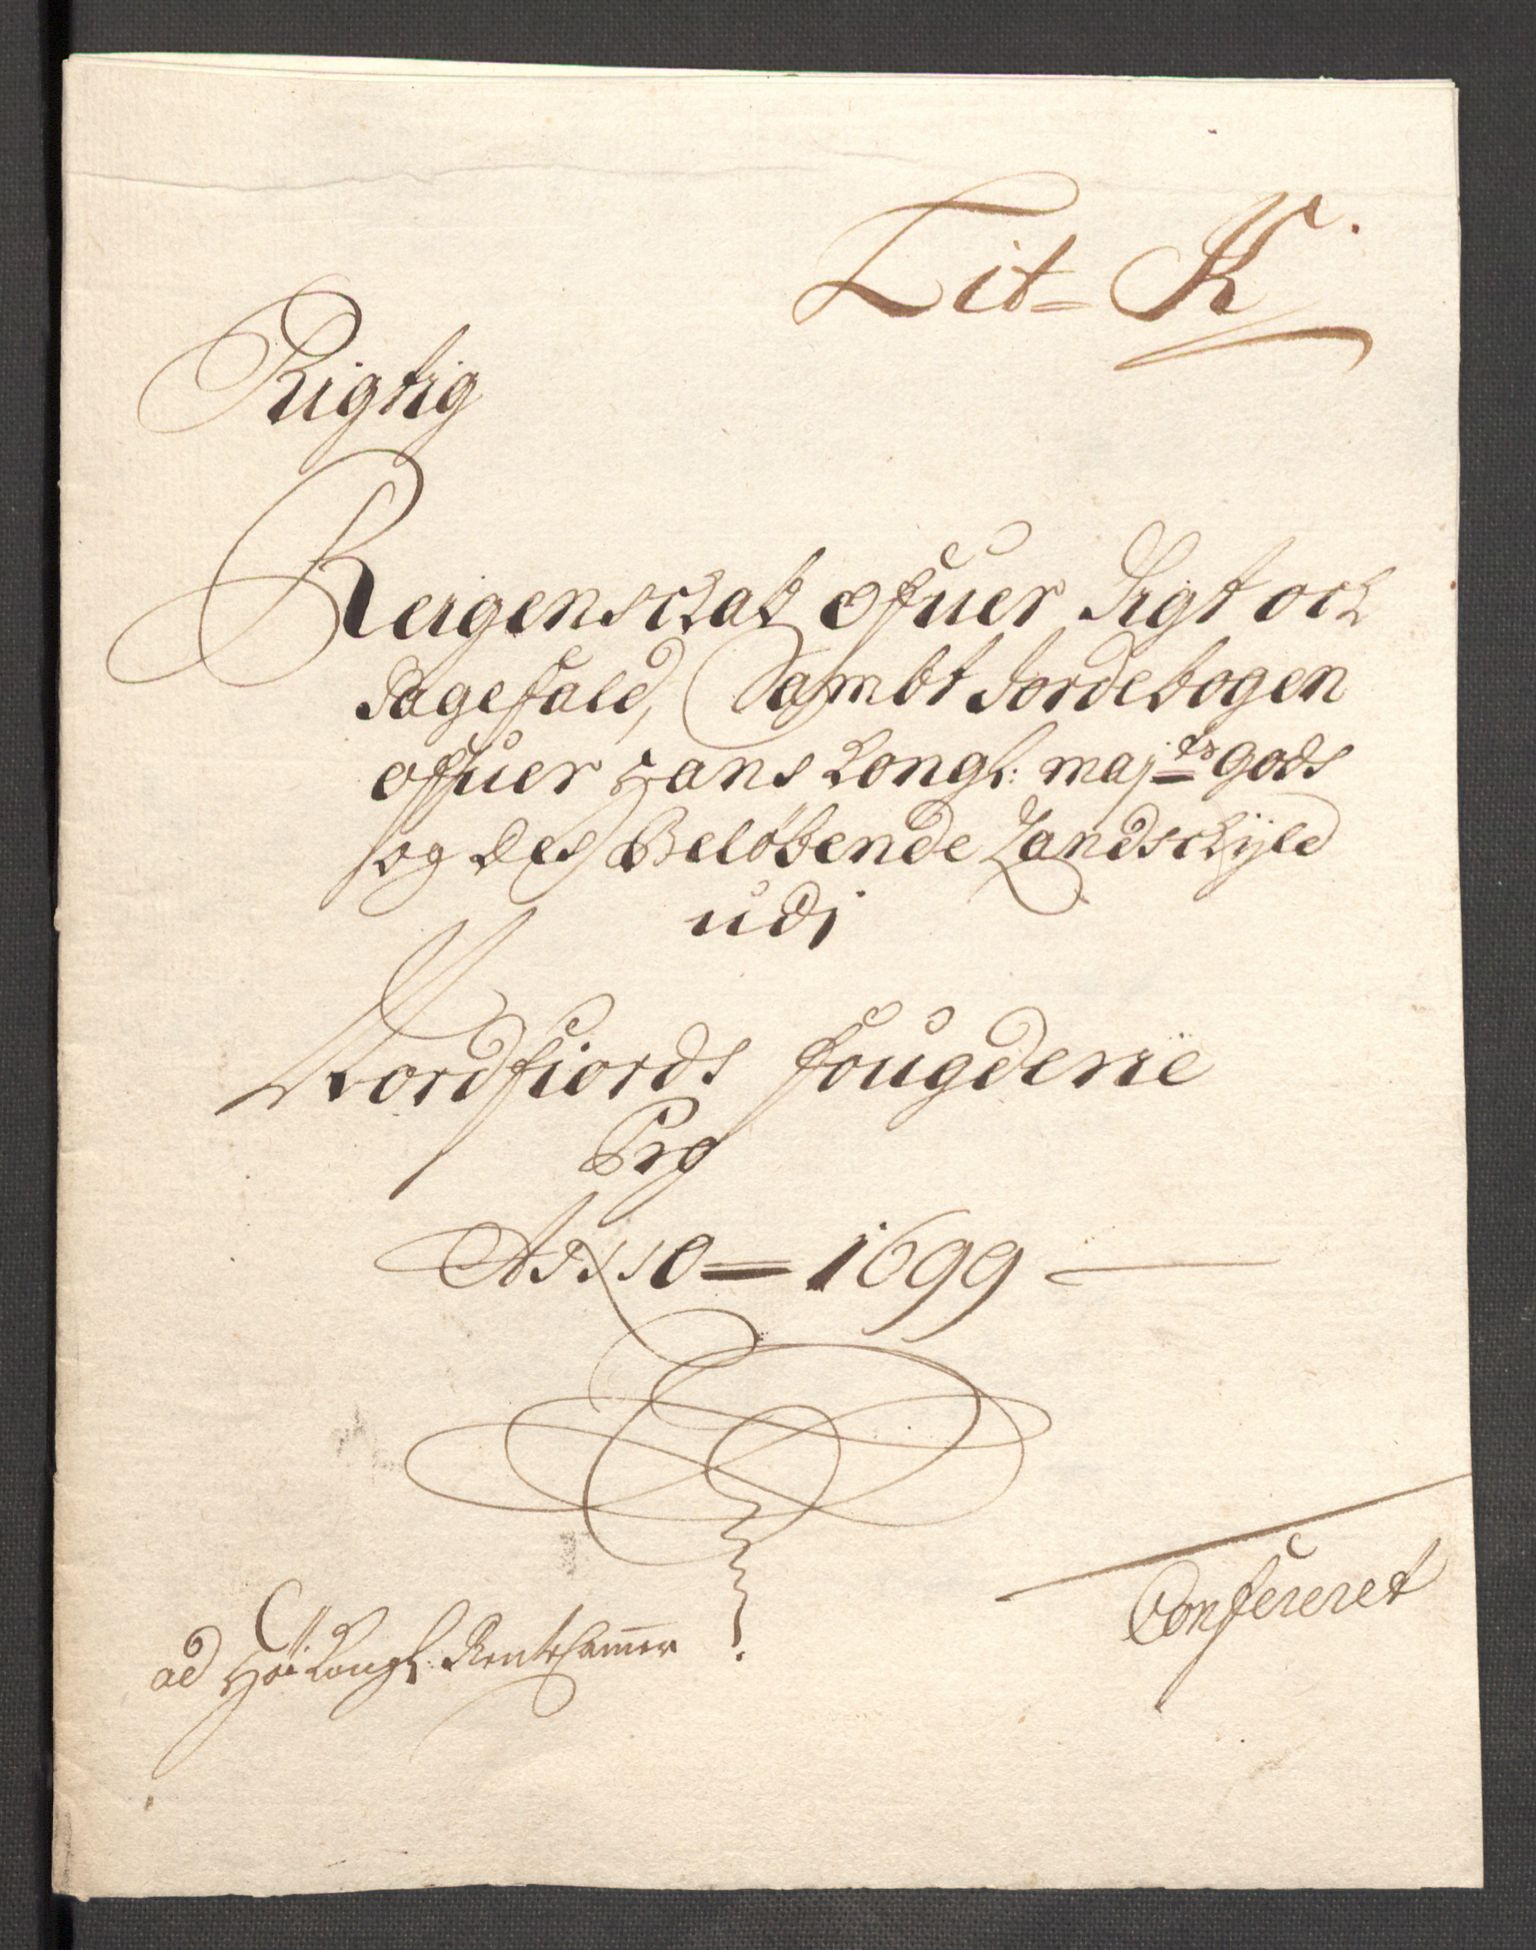 Lit= K.
Rigtig
Reigenschab ofuer Sigt och
Sagefald, Sambt Jordebogen
offuer Hans Kongl: maj:ts gods
og des Beløbende Landschyld
udj
Nordfiords fougderie
Pro
Anno = 1699
Confereret
ad Höi Kongl: Rente Camer